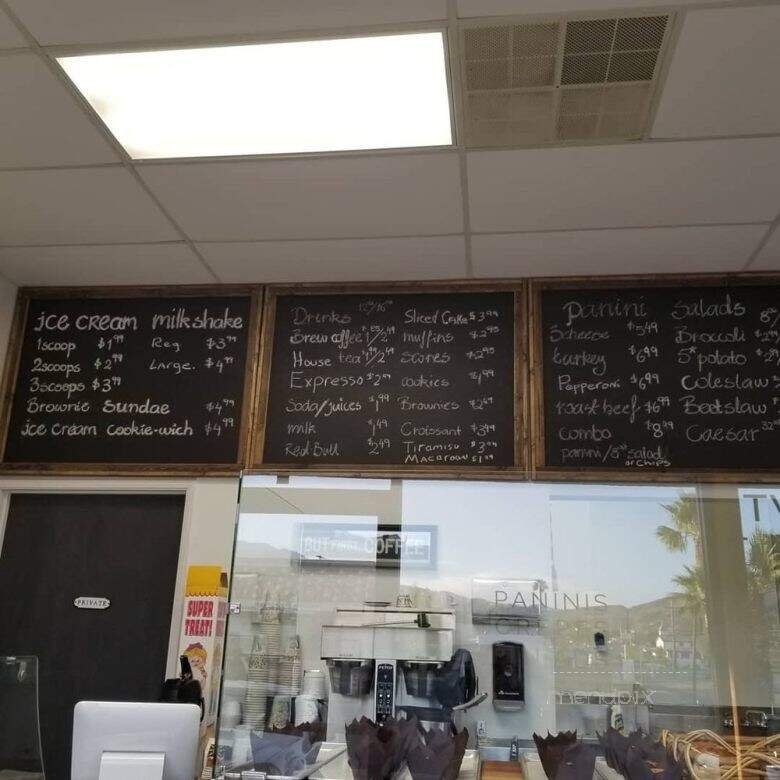 ice cream milkshake
1scoop $1⁹⁹ Reg $3⁹⁹
2scoops $2⁹⁹ Large. $4⁹⁹
3scoops $3⁹⁹
Brownie Sundae $4⁹⁹
ice cream cookie-wich $4⁹⁹
Drinks
Brew coffee
House tea
Expresso
Soda/juices $1⁹⁹
milk
Red Bull
Sliced Cake $3⁹⁹
muffins $2⁹⁵
Scones $2⁹⁵
cookies
Brownies
Croissant
Tiramisu
Macaroon
panini
3cheese $5⁴⁹
turkey $6⁹⁹
Pepperoni $6⁹⁹
roast beef $6⁹⁹
combo $8⁹⁹
panini/8ᵒᶻ salad
or chips
Salads
Broccoli
potato
Coleslaw
Beetslaw
Caesar
PRIVATE
SUPER
TREAT!
BUT COFFEE
PANINIS
menupix